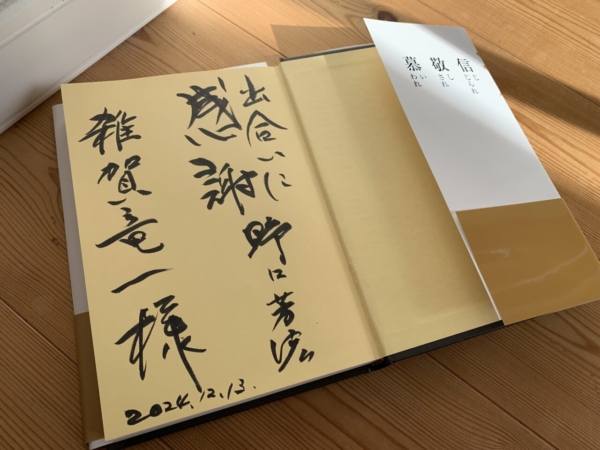 出合いに
感謝
野口芳宏
雑賀竜一様
2024.12.13.
信じ じられ
敬し され
慕い われ